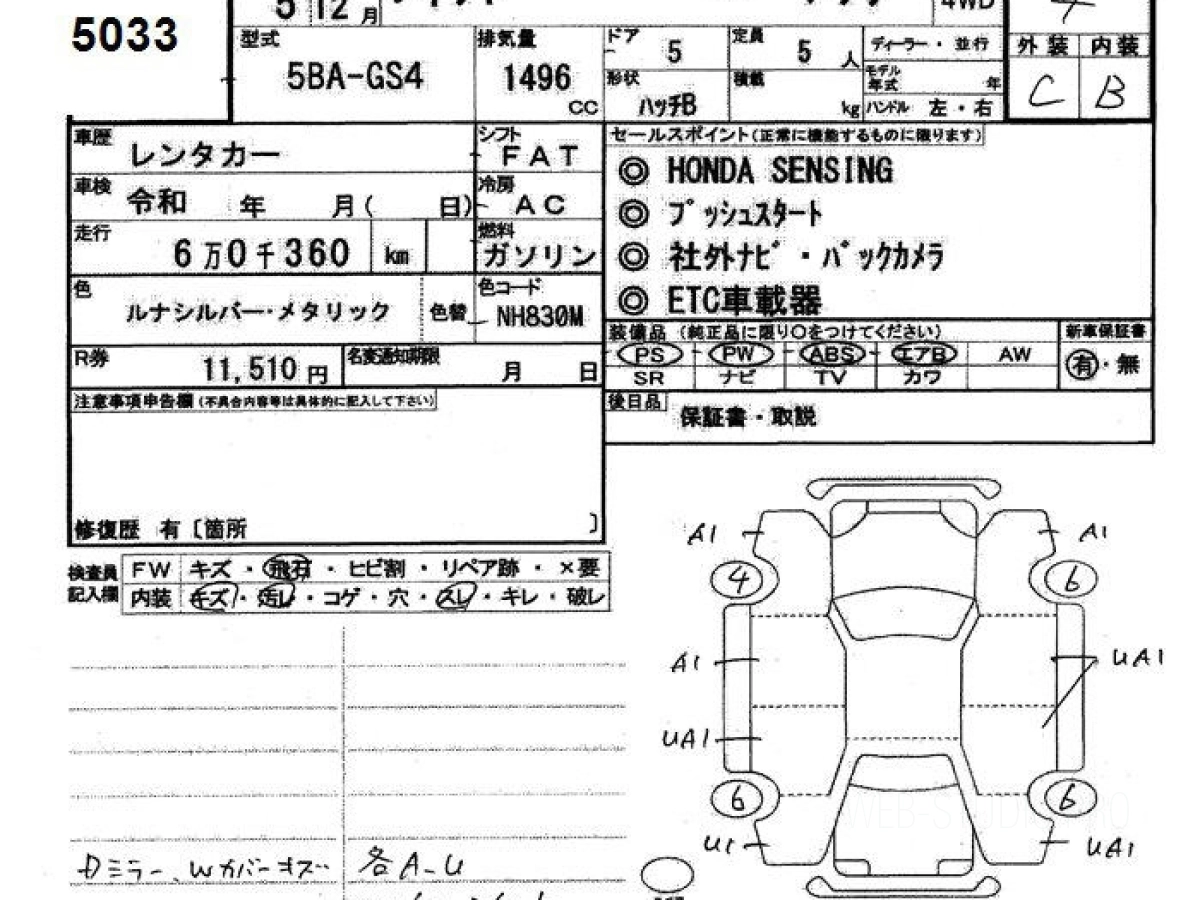 5033
5 12 月 4WD
型式 排気量 ドア 5 定員 5 人 ディーラー・並行 外装 内装
5BA-GS4 1496 CC
形状 ハッチB 積載 kg モデル年式 年
ハンドル 左・右 C B
車歴 レンタカー シフト FAT
セールスポイント(正常に機能するものに限ります)
◎ HONDA SENSING
車検 令和 年 月( 日) 冷房 AC
◎ プッシュスタート
走行 6万0千360 km 燃料 ガソリン
◎ 社外ナビ・バックカメラ
色 ルナシルバー・メタリック 色替 色コード NH830M
◎ ETC車載器
装備品 (純正品に限り〇をつけてください) 新車保証書
PS PW ABS エアB AW 有・無
SR ナビ TV カワ
R券 11,510 円 名変通知期限 月 日
注意事項申告欄(不具合内容等は具体的に記入して下さい)
後日品 保証書・取説
修復歴 有〔箇所 〕
検査員記入欄 FW キズ・飛石・ヒビ割・リペア跡・×要
内装 キズ・汚レ・コゲ・穴・スレ・キレ・破レ
A1 A1
4 6
A1 UA1
UA1
6 6
U1 UA1
ミラー、Wカバーキズ 各A-U